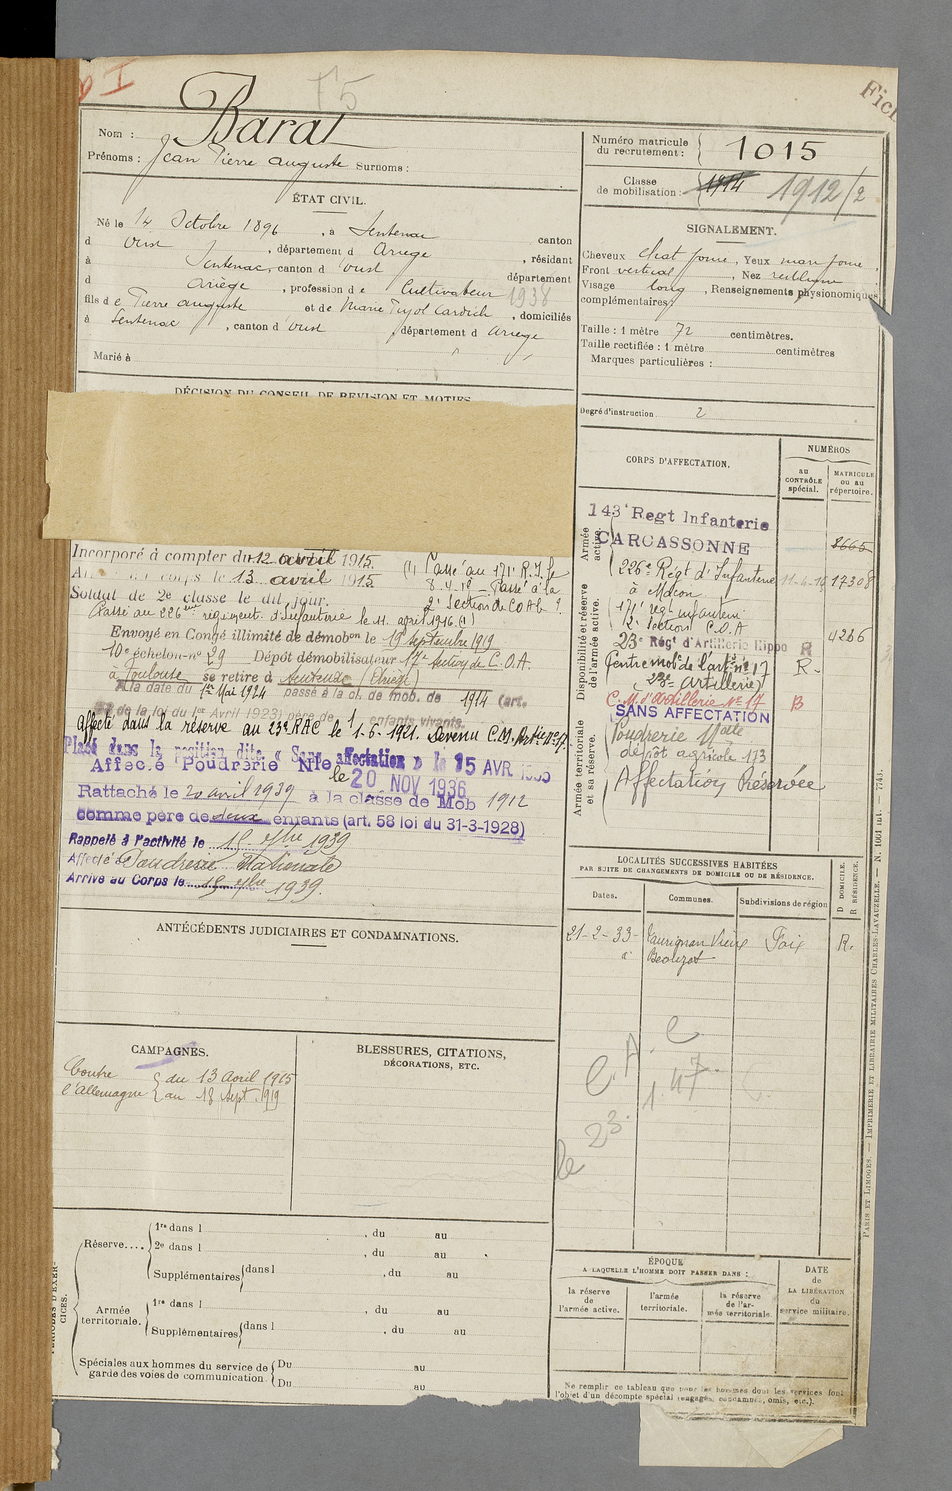 T5
Fich
Nom : Barat
Prénoms : Jean Pierre Auguste Surnoms :
Numéro matricule du recrutement : 1015
Classe de mobilisation : 1914 1912/2
ÉTAT CIVIL.
Né le 14 Octobre 1896, à Sentenac canton
d'Oust, département d Ariège, résidant
à Sentenac, canton d'Oust département
d Ariège, profession de Cultivateur 1938
fils de Pierre Auguste et de Marie Pujol Cardich, domiciliés
à Sentenac, canton d'Oust, département d Ariège
Marié à
SIGNALEMENT.
Cheveux chat fonc, Yeux mar fonc,
Front vertical, Nez rectiligne
Visage long, Renseignements physionomiques
complémentaires
Taille : 1 mètre 72 centimètres.
Taille rectifiée : 1 mètre centimètres
Marques particulières :
Degré d'instruction. 2
DÉCISION DU CONSEIL DE REVISION ET MOTIFS.
Incorporé à compter du 12 avril 1915.
corps le 13 avril 1915
Soldat de 2e classe le dit jour.
(1) Passé au 171e R.I. le
8.4.18 - Passé à la
2e Section de COA le
Passé au 226ème régiment d'Infanterie le 11 avril 1916 (1)
Envoyé en Congé illimité de démobon le 19 septembre 1919
10e échelon no 29 Dépôt démobilisateur 17e Section de C.O.A.
à Toulouse se retire à Sentenac (Ariège)
A la date du 1er Mai 1924 passé à la cl. de mob. de 1914 (art.
de la loi du 1er Avril 1923) père de 1 enfants vivants.
Affecté dans la réserve au 23e RAC le 1-6-1921. Devenu C.M. Artie No 17
Placé dans la position dite « Sans affectation » le 15 AVR
Affecté Poudrerie Nle le 20 NOV 1936
Rattaché le 20 avril 1939 à la classe de Mob 1912
comme père de deux enfants (art. 58 loi du 31-3-1928)
Rappelé à l'activité le 15 7bre 1939
Affecté Poudrerie Nationale
Arrivé au Corps le 15 7bre 1939.
CORPS D'AFFECTATION.
NUMÉROS
au CONTRÔLE spécial.
MATRICULE ou au répertoire.
Armée active.
143e Regt Infanterie
CARCASSONNE 8665
226e Régt d'Infanterie 11-4-16 17308
à Mâcon
Disponibilité et réserve de l'armée active.
171e régt infanterie
2e Section C.O.A 4266
23e Régt d'Artillerie Hippo R
Centre mobre de l'artie no 17 R.
(28e Artillerie)
C.M. d'Artillerie No 17 B
SANS AFFECTATION
Armée territoriale et sa réserve.
Poudrerie Nale
dépôt agricole 173
Affectation Réservée
ANTÉCÉDENTS JUDICIAIRES ET CONDAMNATIONS.
LOCALITÉS SUCCESSIVES HABITÉES
PAR SUITE DE CHANGEMENTS DE DOMICILE OU DE RÉSIDENCE.
Dates. Communes. Subdivisions de région
D DOMICILE.
R RÉSIDENCE.
21-2-33 Taurignan Vieux Foix R.
C.A.C
le 23.1.47
CAMPAGNES.
Contre l'Allemagne { du 13 Avril 1915
au 18 Sept. 1919
BLESSURES, CITATIONS,
DÉCORATIONS, ETC.
PÉRIODES D'EXERCICES.
Réserve.... 1re dans l , du au
2e dans l , du au
Supplémentaires dans l , du au
Armée territoriale. 1re dans l , du au
Supplémentaires dans l , du au
Spéciales aux hommes du service de garde des voies de communication Du au
Du au
ÉPOQUE
A LAQUELLE L'HOMME DOIT PASSER DANS :
la réserve de l'armée active.
l'armée territoriale.
la réserve de l'armée territoriale.
DATE de LA LIBÉRATION du service militaire.
Ne remplir ce tableau que pour les hommes dont les services font
l'objet d'un décompte spécial (engagés, condamnés, omis, etc.).
PARIS ET LIMOGES. — IMPRIMERIE ET LIBRAIRIE MILITAIRES CHARLES-LAVAUZELLE. — N. 1001 int. — 7743.